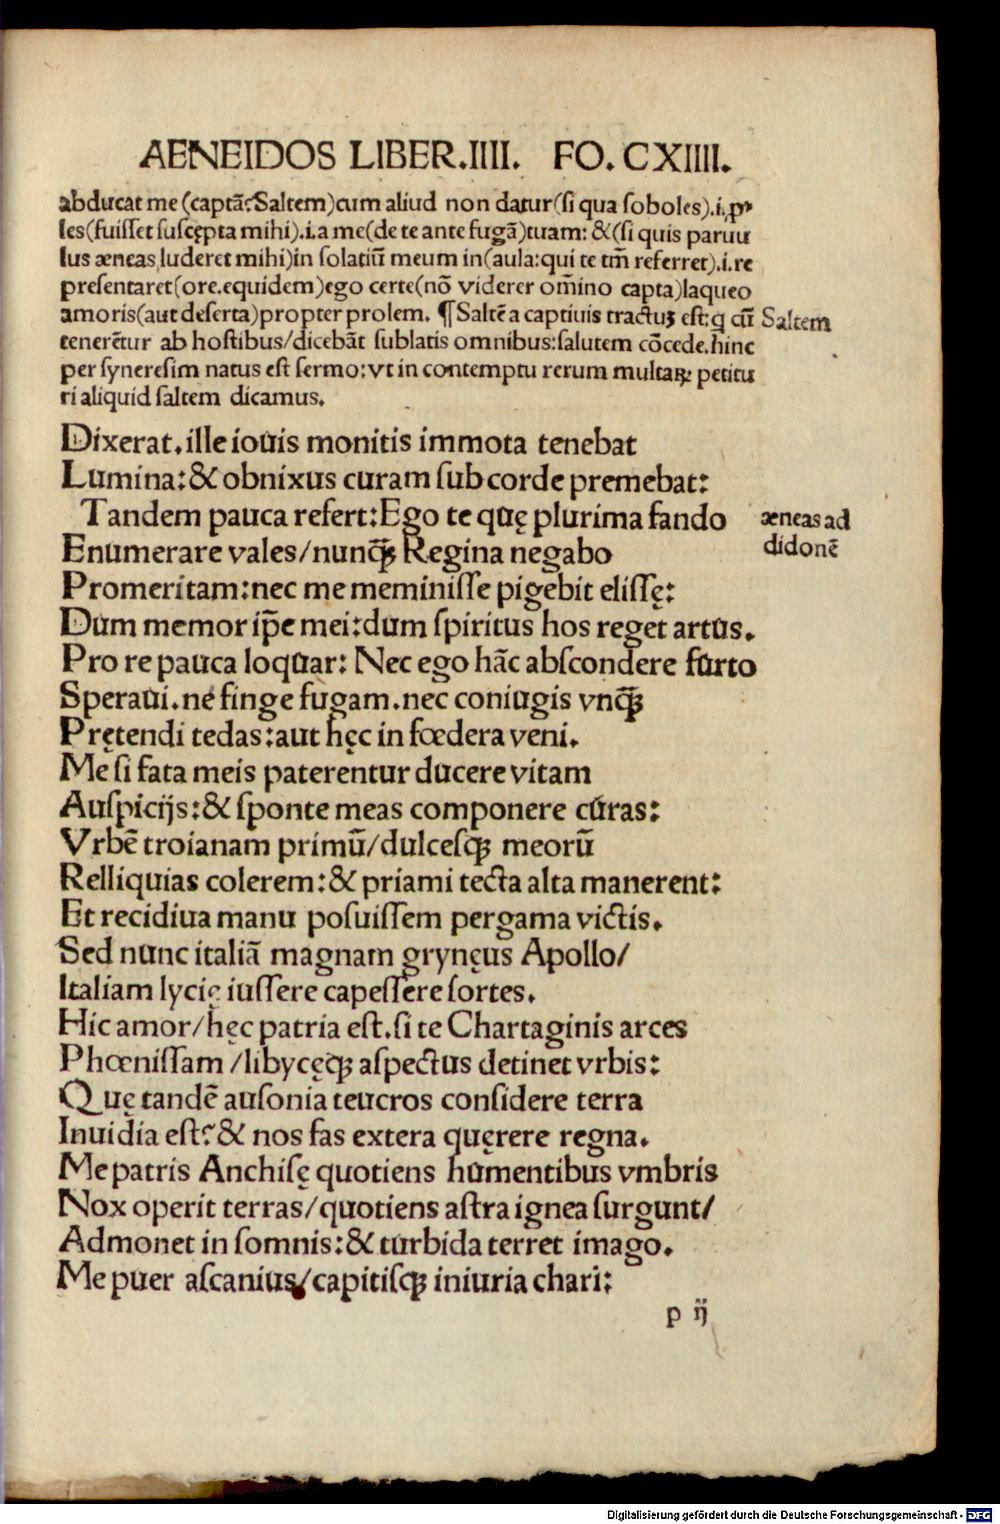 AENEIDOS LIBER.IIII. FO. CXIIII.
abducat me (captã?Saltem)cum aliud non datur(ſi qua ſoboles).i.ꝓ
les(fuiſſet ſuſcępta mihi).i.a me(de te ante fugã)tuam: &(ſi quis paruu
lus æneas luderet mihi)in ſolatiũ meum in(aula:qui te tm̃ referret).i.re
preſentaret(ore.equidem)ego certe(nõ viderer om̃ino capta)laqueo
amoris(aut deſerta)propter prolem. ¶Saltẽ a captiuis tractuꝫ eſt:q cũ
Saltem
tenerẽtur ab hoſtibus/dicebãt ſublatis omnibus:ſalutem cõcede.hinc
per ſynereſim natus eſt ſermo:vt in contemptu rerum multaꝝ petitu
ri aliquid ſaltem dicamus.
Dixerat.ille iouis monitis immota tenebat
Lumina:& obnixus curam ſub corde premebat:
Tandem pauca refert:Ego te quę plurima fando
æneas ad
Enumerare vales/nunꝗ̃ Regina negabo
didonẽ
Promeritam:nec me meminiſſe pigebit eliſſę:
Dum memor ip̃e mei:dum ſpiritus hos reget artus.
Pro re pauca loquar: Nec ego hãc abſcondere furto
Speraui.ne finge fugam.nec coniugis vnꝗ̃
Prętendi tedas:aut hęc in fœdera veni.
Me ſi fata meis paterentur ducere vitam
Auſpicijs:& ſponte meas componere curas:
Vrbẽ troianam primũ/dulceſqꝫ meorũ
Relliquias colerem:& priami tecta alta manerent:
Et recidiua manu poſuiſſem pergama victis.
Sed nunc italiã magnam grynęus Apollo/
Italiam lycię iuſſere capeſſere ſortes.
Hic amor/hęc patria eſt.ſi te Chartaginis arces
Phœniſſam /libycęqꝫ aſpectus detinet vrbis:
Quę tandẽ auſonia teucros conſidere terra
Inuidia eſt?& nos fas extera quęrere regna.
Me patris Anchiſę quotiens humentibus vmbris
Nox operit terras/quotiens aſtra ignea ſurgunt/
Admonet in ſomnis:& turbida terret imago.
Me puer aſcanius/capitiſqꝫ iniuria chari:
p ij
Digitalisierung gefördert durch die Deutsche Forschungsgemeinschaft - DFG